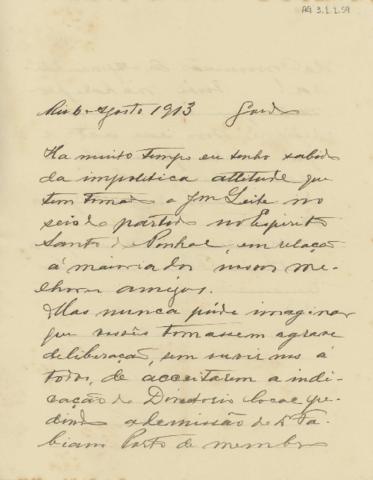 AG 3.1.1.59
Rio 6 Agosto 1913
Ha muito tempo eu tenho sabido
da impolitica attitude que
tem tomado o Jm Leite no
seio do partido no Espirito
Santo do Pinhal, em relação
á maioria dos nossos me-
lhores amigos.
Mas nunca pude imaginar
que vocês tomassem a grave
deliberação, sem ouvir-nos á
todos, de acceitarem a indi-
cação do Directorio local pe-
dindo a demissão do Dr Fa-
biam Porto de membro